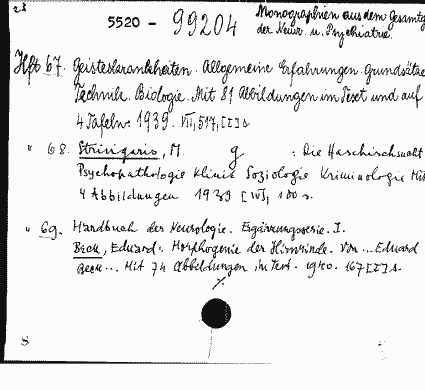 23 5520 - 99204 Monographien aus dem Gesamtg
der Neur. u. Psychiatrie
Hft 67. Geisteskrankheiten. Allgemeine Erfahrungen. Grundsätze
Technik. Biologie. Mit 81 Abbildungen im Text und auf
4 Tafeln. 1939. VII, 517, [I] S.
" 68. Stringaris, M. g : Die Haschischsucht
Psychopathologie Klinik Soziologie Kriminologie Mit
4 Abbildungen 1939 [IV], 100 S.
" 69. Handbuch der Neurologie. Ergänzungsserie. I.
Beck, Eduard: Morphogenie der Hirnrinde. Von ... Eduard
Beck ... Mit 74 Abbildungen im Text. 1940. 167 [I] S.
./.
8